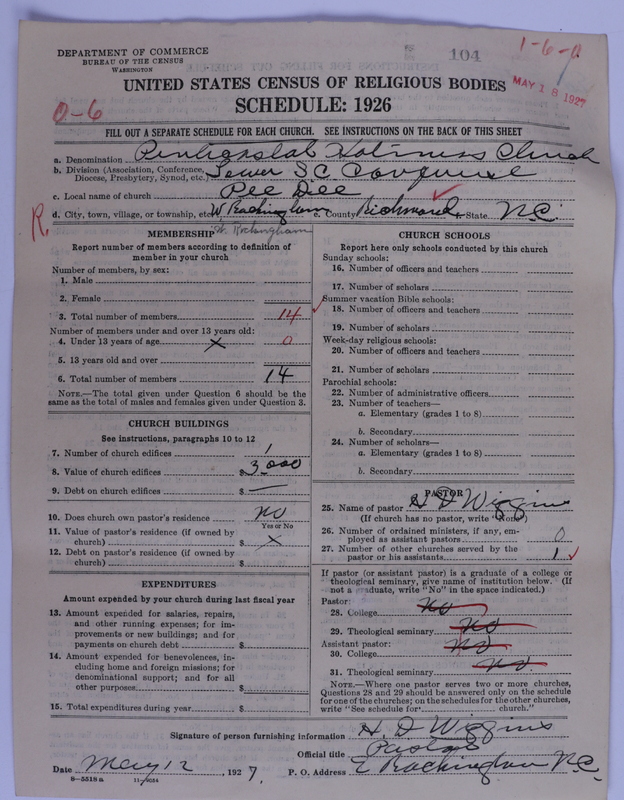 DEPARTMENT OF COMMERCE
BUREAU OF THE CENSUS
WASHINGTON
104
1-6-a
MAY 18 1927
UNITED STATES CENSUS OF RELIGIOUS BODIES
SCHEDULE: 1926
0-6
FILL OUT A SEPARATE SCHEDULE FOR EACH CHURCH. SEE INSTRUCTIONS ON THE BACK OF THIS SHEET
a. Denomination Holiness Church
b. Division (Association, Conference, Diocese, Presbytery, Synod, etc.) S C
c. Local name of church Pee Dee
d. City, town, village, or township, etc. W Rockingham e. County Richmond f. State N.C.
R.
W. Rockingham
MEMBERSHIP
Report number of members according to definition of
member in your church
Number of members, by sex:
1. Male
2. Female
3. Total number of members 14
Number of members under and over 13 years old:
4. Under 13 years of age x 0
5. 13 years old and over
6. Total number of members 14
NOTE.—The total given under Question 6 should be the
same as the total of males and females given under Question 3.
CHURCH BUILDINGS
See instructions, paragraphs 10 to 12
7. Number of church edifices 1
8. Value of church edifices $3,000
9. Debt on church edifices $ —
10. Does church own pastor's residence No
Yes or No
11. Value of pastor's residence (if owned by
church) $ x
12. Debt on pastor's residence (if owned by
church) $
EXPENDITURES
Amount expended by your church during last fiscal year
13. Amount expended for salaries, repairs,
and other running expenses; for im-
provements or new buildings; and for
payments on church debt $
14. Amount expended for benevolences, in-
cluding home and foreign missions; for
denominational support; and for all
other purposes $
15. Total expenditures during year $
CHURCH SCHOOLS
Report here only schools conducted by this church
Sunday schools:
16. Number of officers and teachers
17. Number of scholars
Summer vacation Bible schools:
18. Number of officers and teachers
19. Number of scholars
Week-day religious schools:
20. Number of officers and teachers
21. Number of scholars
Parochial schools:
22. Number of administrative officers
23. Number of teachers—
a. Elementary (grades 1 to 8)
b. Secondary
24. Number of scholars—
a. Elementary (grades 1 to 8)
b. Secondary
PASTOR
25. Name of pastor H D Wiggins
(If church has no pastor, write "None")
26. Number of ordained ministers, if any, em-
ployed as assistant pastors 0
27. Number of other churches served by the
pastor or his assistants 1
If pastor (or assistant pastor) is a graduate of a college or
theological seminary, give name of institution below. (If
not a graduate, write "No" in the space indicated.)
Pastor:
28. College No
29. Theological seminary No
Assistant pastor:
30. College No
31. Theological seminary No
NOTE.—Where one pastor serves two or more churches,
Questions 28 and 29 should be answered only on the schedule
for one of the churches; on the schedules for the other churches,
write "See schedule for church."
Signature of person furnishing information H. D Wiggins
Official title Pastor
Date May 12, 1927. P. O. Address E Rockingham N.C.
8-5518a 11-9034